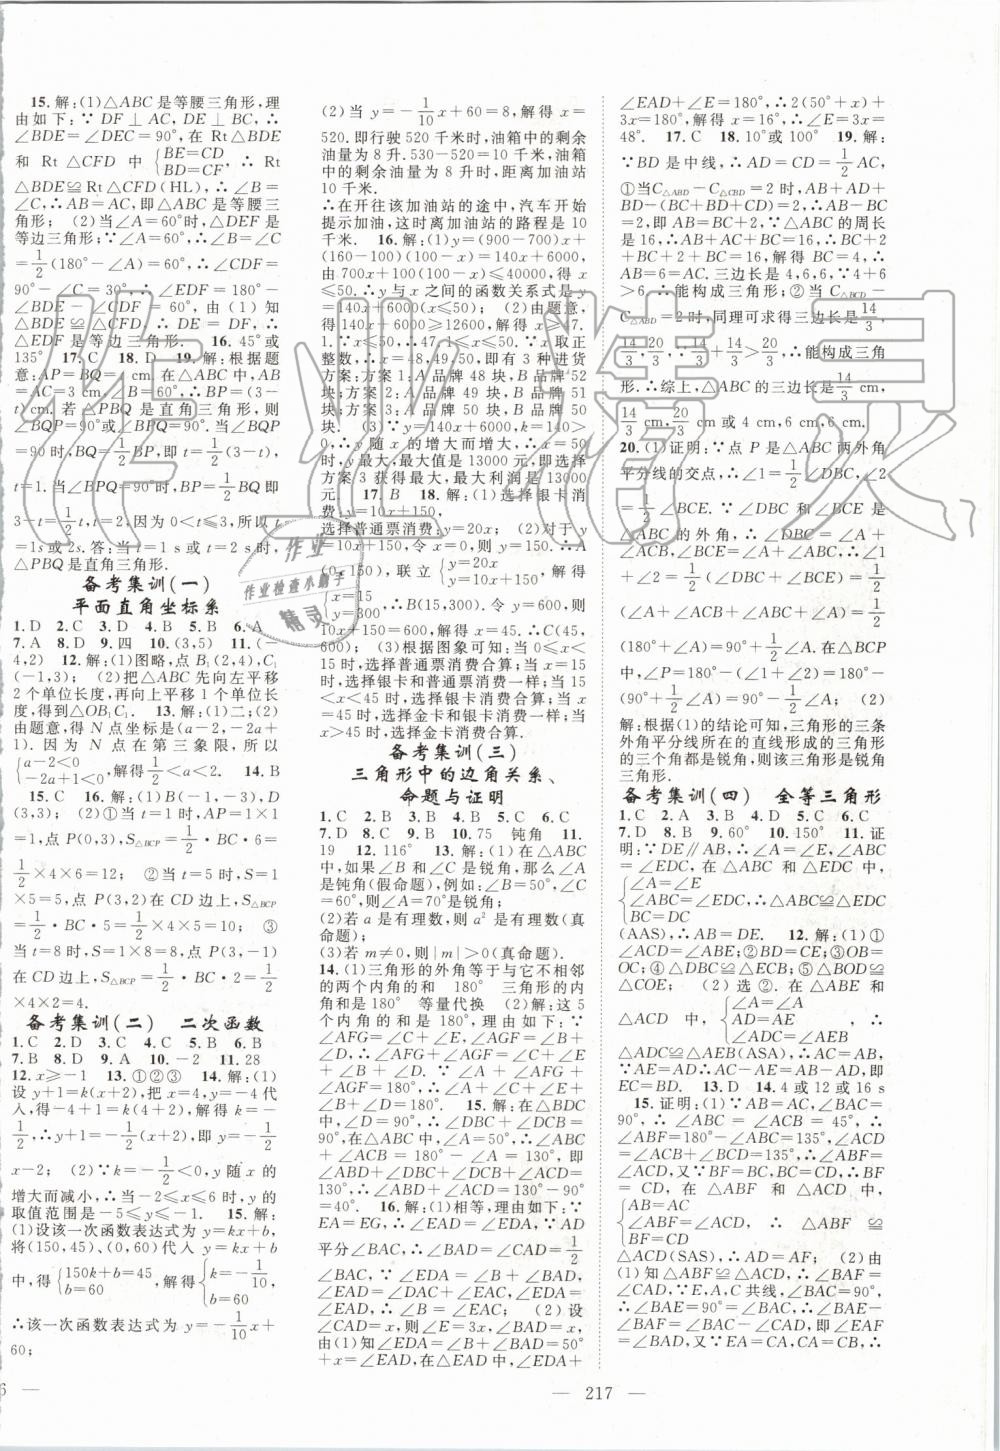 15.解:(1)△ABC是等腰三角形,理
由如下:∵ DF⊥AC,DE⊥AB,∴
∠BDE=∠DEC=90°,在Rt△BDE
和 Rt△CFD 中{BE=CD BD=CF,∴Rt
△BDE≌Rt△CFD(HL),∴∠B=
∠C,∴AB=AC,即△ABC是等腰三角
形; (2)当∠A=60°时,△DEF是
等边三角形.∵∠A=60°,∴∠B=∠C
=1/2(180°-∠A)=60°,∴∠CDF=
90°-∠C=30°,∴∠EDF=180°-
∠BDE-∠CDF=60°,由(1)知
△BDE≌△CFD,∴DE=DF,∴
△EDF是等边三角形. 16.45°或
135° 17.C 18.D 19.解:根据题
意:AP=BQ=t cm.在△ABC中,AB
=AC=3 cm,∠B=60°,∴BP=(3-
t)cm.若△PBQ是直角三角形,则
∠BQP=90°或∠BPQ=90°.当∠BQP
=90时,BQ=1/2BP,即t=1/2(3-t),
t=1.当∠BPQ=90时,BP=1/2BQ即
3-t=1/2t,t=2,因为0<t≤3,所以t
=1s或2s.答:当t=1 s或t=2s时,
△PBQ是直角三角形.
备考集训(一)
平面直角坐标系
1.D 2.C 3.D 4.B 5.B 6.A
7.A 8.D 9.四 10.(3,5) 11.(-
4,2) 12.解:(1)图略,点B₁(2,4),C₁
(-1,3); (2)把△ABC先向左平移
2个单位长度,再向上平移1个单位长
度,得到△OB₁C₁. 13.解:(1)二;(2)
由题意,得N点坐标是(a-2,-2a+
1).因为N点在第三象限,所以
{a-2<0 -2a+1<0,解得1/2<a<2. 14.B
15.C 16.解:(1)B(-1,-3),D
(3,3); (2)①当t=1时,AP=1×1
=1,点P(0,3),S△BCP=1/2·BC·6=
1/2×4×6=12; ②当t=5时,S=1
×5=5,点P(3,2)在CD边上,S△BCP
=1/2·BC·5=1/2×4×5=10; ③
当t=8时,S=1×8=8,点P(3,-1)
在CD边上,S△BCP=1/2·BC·2=1/2
×4×2=4.
备考集训(二) 二次函数
1.C 2.D 3.C 4.C 5.B 6.B
7.B 8.D 9.A 10.-2 11.28
12.x≥-1 13.①②③ 14.解:(1)
设y+1=k(x+2),把x=4,y=-4代
入,得-4+1=k(4+2),解得k=-
1/2,∴y+1=-1/2(x+2),即y=-1/2
x-2; (2)∵k=-1/2<0,y随x的
增大而减小,∴当-2≤x≤6时,y的
取值范围是-5≤y≤-1. 15.解:
(1)设该一次函数表达式为y=kx+b,
将(150,45)、(0,60)代入y=kx+b
中,得{150k+b=45 b=60,解得{k=-1/10 b=60,
∴该一次函数表达式为y=-1/10x+
60;
6 —
(2)当y=-1/10x+60=8,解得x=
520.即行驶520千米时,油箱中的剩余
油量为8升.530-520=10千米,油箱
中的剩余油量为8升时,距离加油站
10千米.
∴在开往该加油站的途中,汽车开始
提示加油,这时离加油站的路程是10
千米. 16.解:(1)y=(900-700)x+
(160-100)(100-x)=140x+6000,
由700x+100(100-x)≤40000,得x
≤50.∴y与x之间的函数关系式是y
=140x+6000(x≤50); (2)由题意,
得140x+6000≥12600,解得x≥47.
1.∵x≤50,∴47.1≤x≤50.∵x取正
整数,∴x=48,49,50,即有3种进货
方案:方案1:A品牌48块,B品牌52
块;方案2:A品牌49块,B品牌51
块;方案3:A品牌50块,B品牌50
块; (3)∵y=140x+6000,k=140>
0,∴y随x的增大而增大,∴x=50
时,y最大,最大值是13000元,即方案
选择方案3获得最大,最大利润是13000
元. 17.B 18.解:(1)选择银卡消
费:y=10x+150,
选择普通票消费:y=20x; (2)对于y
=10x+150,令x=0,y=150,∴A
(0,150),联立{y=20x y=10x+150,解得
{x=15 y=300,∴B(15,300).令y=600,则
10x+150=600,解得x=45,∴C(45,
600); (3)根据图象可知:当0≤x<
15时,选择普通票消费合算;当x=15
时,选择普通票和银卡消费一样;当15
<x<45时,选择银卡消费合算;当x=
45时,选择金卡和银卡消费一样;当
x>45时,选择金卡消费合算.
备考集训(三)
三角形中的边角关系、
命题与证明
1.C 2.B 3.B 4.B 5.C 6.C
7.D 8.C 9.C 10.75 钝角 11.
19 12.116° 13.解:(1)在△ABC
中,如果∠B和∠C是锐角,那么∠A
是钝角(假命题),例如:∠B=50°,∠C
=60°,则∠A=70°是锐角;
(2)若a是有理数,则a²是有理数(真
命题);
(3)若m≠0,则|m|>0(真命题).
14.(1)三角形的外角等于与它不相邻
的两个内角的和 180° 三角形的内
角和是180° 等量代换 (2)解:这5
个内角的和是180°,理由如下:∵
∠AFG=∠C+∠E,∠AGF=∠B+
∠D,∴∠AFG+∠AGF=∠C+∠E
+∠B+∠D.∵∠A+∠AFG+
∠AGF=180°,∴∠A+∠B+∠C+∠D
+∠E=180°. 15.解:在△BDC
中,∠D=90°,∴∠DBC+∠DCB=
90°.在△ABC中,∠ABC+∠ACB+
∠A=180°-∠A=130°,即
∠ABD+∠DBC+∠DCB+∠ACD=
130°,∴∠ABD+∠ACD=130°-90°
=40°. 16.解:(1)相等,理由如下:∵
EA=EG,∴∠EAD=∠EDA,∵AD
平分∠BAC,∴∠BAD=∠CAD=1/2
∠BAC,∵∠EDA=∠B+∠BAD,
∠EAD=∠DAC+∠EAC,∠EAD=
∠EDA,∴∠B=∠EAC; (2)设
∠CAD=x,则∠E=3x,∠BAD=x,
由(1)知∠EDA=∠B+∠BAD=50°
+x=∠EAD,在△EAD中,∠EDA+
∠EAD+∠E=180°,∴2(50°+x)+
3x=180°,解得x=16°,∴∠E=
48°. 17.C 18.10°或100° 19.解:
∵BD是中线,∴AD=CD=1/2AC,
①当C△ABD-C△CBD=2时,AB+AD+
BD-(BC+BD+CD)=2,∴AB-BC
=2,即AB=BC+2,∵△ABC的周长
是16,∴AB+AC+BC=16,∴BC+2
+BC+2+BC=16,解得BC=4,∴
AB=AC=6.三边长是4,6,6,∵4+6
>6,∴能构成三角形;②当C△BCD-
C△ABD=2时,同理可求得三边长是14/3,
14/3,20/3,∵14/3+14/3>20/3,∴能构成三角
形.∴综上,△ABC的三边长是14/3 cm,
14/3 cm,20/3 cm或4 cm,6 cm,6 cm.
20.(1)证明:∵点P是△ABC两外角
平分线的交点,∴∠1=1/2∠DBC,∠2
=1/2∠BCE.∵∠DBC、∠BCE是
△ABC的外角,∴∠DBC=∠A+
∠ACB,∠BCE=∠A+∠ABC,∴∠1
+∠2=1/2(∠DBC+∠BCE)=1/2
(∠A+∠ACB+∠ABC+∠A)=1/2
(180°+∠A)=90°+1/2∠A.在△BCP
中,∠P=180°-(∠1+∠2)=180°-
(90°+1/2∠A)=90°-1/2∠A; (2)
解:根据(1)的结论可知,三角形的三条
外角平分线所在的直线形成的三角形
的三个角都是锐角,则该三角形是锐角
三角形.
备考集训(四) 全等三角形
1.C 2.A 3.B 4.D 5.C 6.C
7.D 8.B 9.60° 10.150° 11.证
明:∵DE∥AB,∴∠A=∠E,∠ABC
=∠EDC,在△ABC和△EDC中,
{∠A=∠E ∠ABC=∠EDC,∴△ABC≌△EDC BC=DC
(AAS),∴AB=DE. 12.解:(1)①
∠ACD=∠ABE;②BD=CE;③OB=
OC;④△DBC≌△ECB;⑤△BOD≌
△COE; (2)选②.在△ABE和
△ACD中,{∠A=∠A AD=AE ∠ADC=∠AEB,∴
△ADC≌△AEB(ASA),∴AC=AB,
∵AE=AD∴AC-AE=AB-AD,即
EC=BD. 13.D 14.4或12或16 s
15.证明:(1)∵AB=AC,∠BAC=
90°,∴∠ABC=∠ACB=45°,∴
∠ABF=180°-∠ABC=135°,∠ACD
=180°-∠ACB=135°,∴∠ABF=
∠ACD,又∵BF=BC,BC=CD,∴BF
=CD,在△ABF和△ACD中,
{AB=AC ∠ABF=∠ACD BF=CD,∴△ABF≌
△ACD(SAS),∴AD=AF; (2)由
(1)知△ABF≌△ACD,∴∠FAB=
∠CAD,∵E,A,C共线,∠BAC=90°,
∴∠BAE=90°=∠BAC,∴∠BAE-
∠BAF=∠BAC-∠CAD,即∠EAF
=∠BAD.又∵AE=AC=AB,AF=
— 217 —